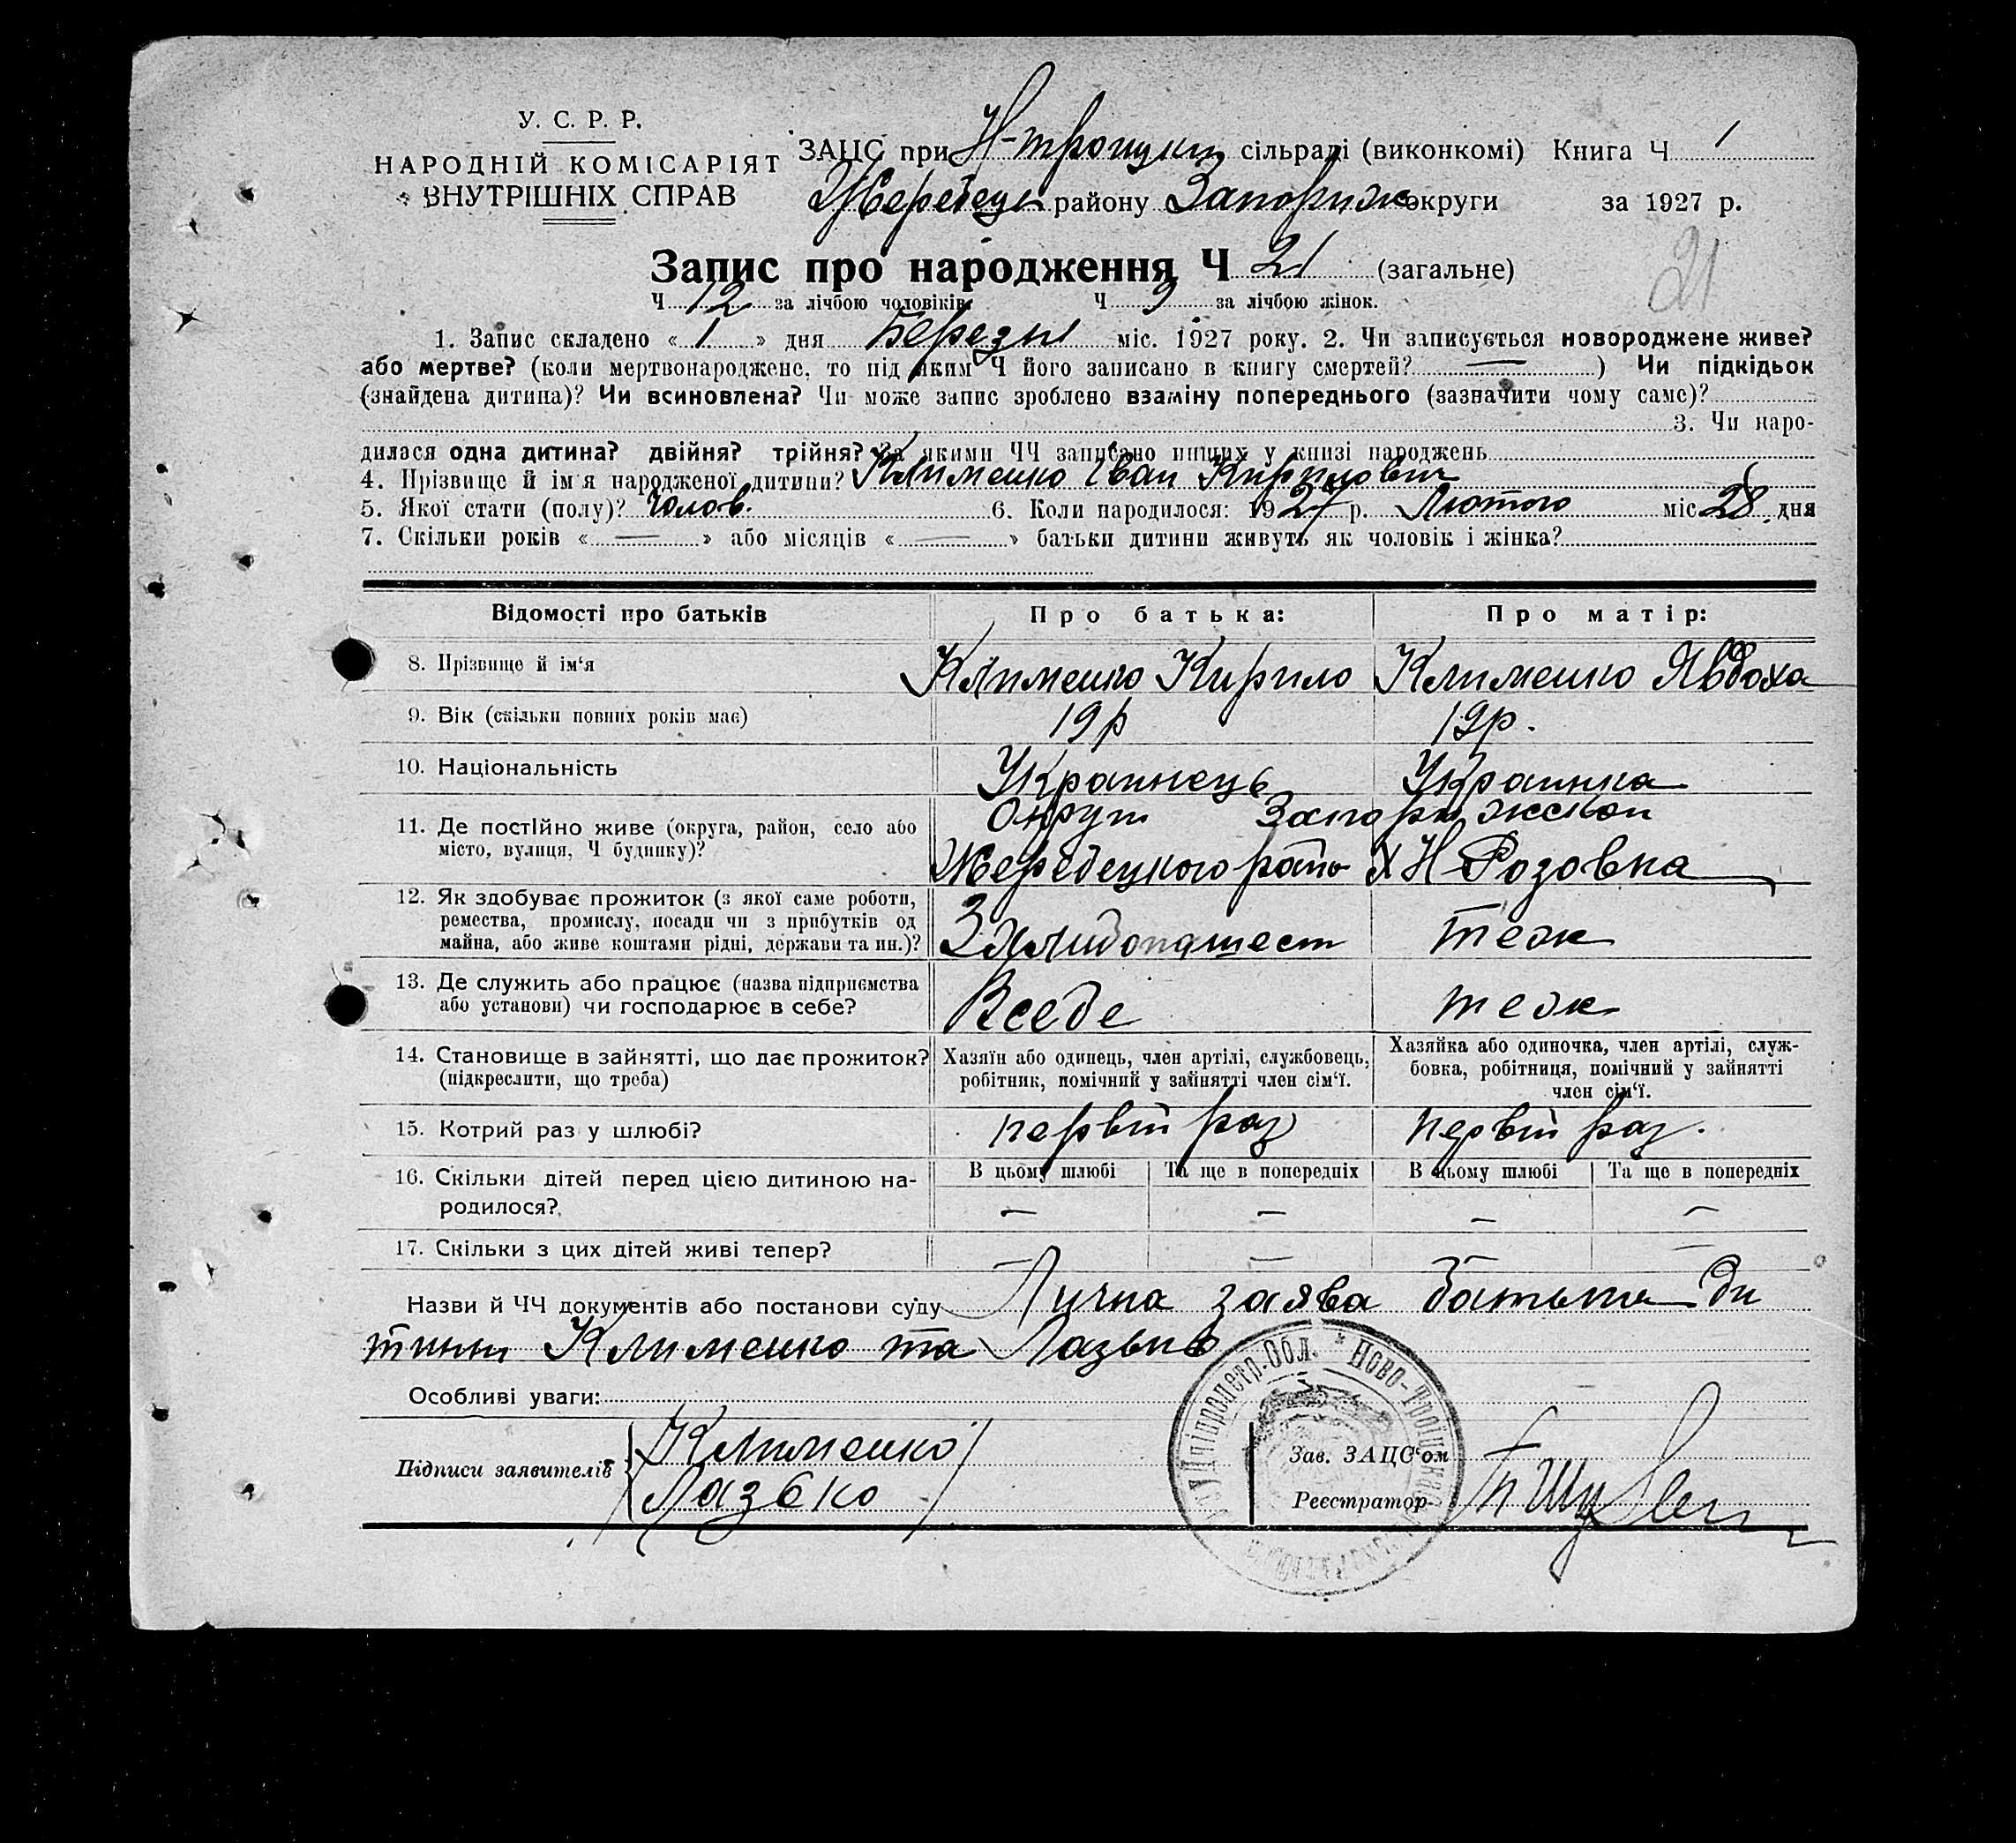 У. С. Р. Р.
НАРОДНІЙ КОМІСАРІЯТ
ВНУТРІШНІХ СПРАВ
ЗАЦС при Н-троицкій сільраді (виконкомі) Книга Ч 1
Жеребець району Запориж округи за 1927 р.
Запис про народження Ч 21 (загальне)
21
Ч 12 за лічбою чоловіків Ч 9 за лічбою жінок.
1. Запис складено « 1 » дня Березня міс. 1927 року. 2. Чи записується новороджене живе?
або мертве? (коли мертвонароджене, то під яким Ч його записано в книгу смертей? — ) Чи підкідьок
(знайдена дитина)? Чи всиновлена? Чи може запис зроблено взаміну попереднього (зазначити чому саме)?
3. Чи наро-
дилася одна дитина? двійня? трійня? За якими ЧЧ записано инших у книзі народжень
4. Прізвище й ім'я народженої дитини? Клименко Іван Кирилович
5. Якої стати (полу)? Чолов. 6. Коли народилося: 1927 р. Лютого міс 28 дня
7. Скільки років « — » або місяців « — » батьки дитини живуть як чоловік і жінка?
Відомості про батьків Про батька: Про матір:
8. Прізвище й ім'я Клименко Кирило Клименко Явдоха
9. Вік (скільки повних років має) 19р 19р.
10. Національність Украинець Украинка
11. Де постійно живе (округа, район, село або
місто, вулиця, Ч будинку)?
Округи Запорижской
Жеребецкого райо х Н-Розовка
12. Як здобуває прожиток (з якої саме роботи,
ремества, промислу, посади чи з прибутків од
майна, або живе коштами рідні, держави та ин.)?
теж
13. Де служить або працює (назва підприємства
або установи) чи господарює в себе?
Всебе теж
14. Становище в зайнятті, що дає прожиток?
(підкреслити, що треба)
Хазяїн або одинець, член артілі, службовець,
робітник, помічний у зайнятті член сім'ї.
Хазяйка або одиночка, член артілі, служ-
бовка, робітниця, помічний у зайнятті
член сім'ї.
15. Котрий раз у шлюбі? первій раз первій раз.
16. Скільки дітей перед цією дитиною на-
родилося?
В цьому шлюбі Та ще в попередніх В цьому шлюбі Та ще в попередніх
— — — —
17. Скільки з цих дітей живі тепер? — — — —
Назви й ЧЧ документів або постанови суду Лична заява батька ди
тини Клименко та Лазько
Особливі уваги:
Підписи заявителів Клименко
Лазько
Зав. ЗАЦС'ом
Реєстратор
Дніпропетр. Обл. * Ново-Троїцька